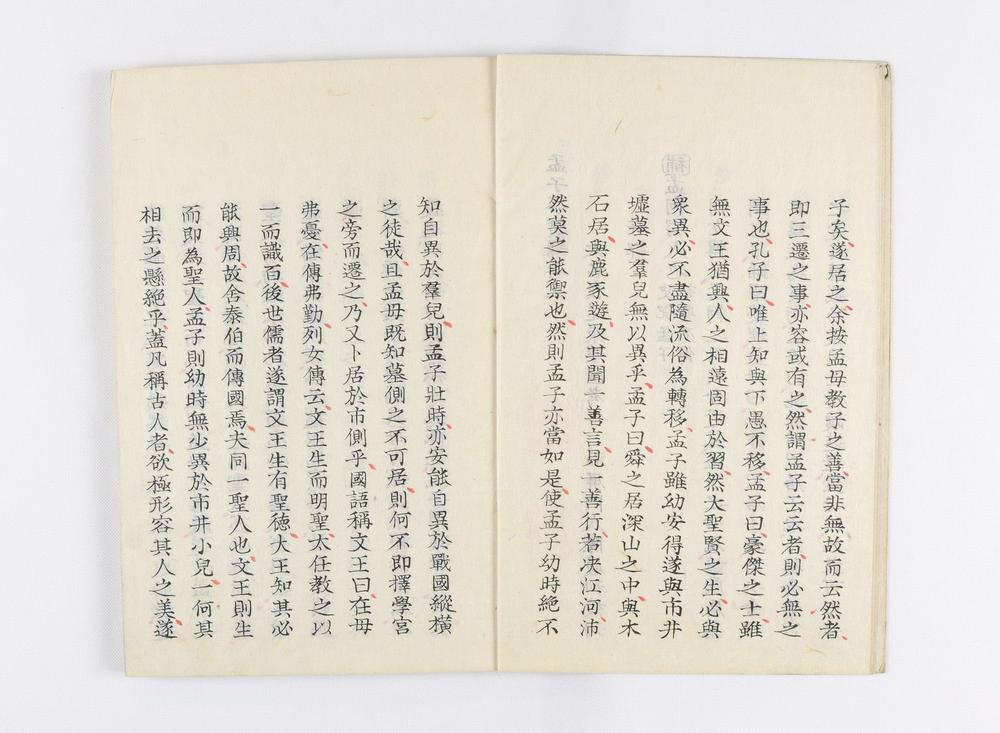 子矣遂居之余按孟母教子之善當非無故而云然者
即三遷之事亦容或有之然謂孟子云云者則必無之
事也孔子曰唯上知與下愚不移孟子曰豪傑之士雖
無文王猶興人之相遠固由於習然大聖賢之生必與
衆異必不盡隨流俗為轉移孟子雖幼安得遂與市井
墟墓之羣兒無以異乎孟子曰舜之居深山之中與木
石居與鹿豕遊及其聞一善言見一善行若决江河沛
然莫之能禦也然則孟子亦當如是使孟子幼時絕不
知自異於羣兒則孟子壯時亦安能自異於戰國縱橫
之徒哉且孟母既知墓側之不可居則何不即擇學宮
之旁而遷之乃又卜居於市側乎國語稱文王曰在母
弗憂在傳弗勤列女傳云文王生而明聖太任教之以
一而識百後世儒者遂謂文王生有聖德大王知其必
能興周故舍泰伯而傳國焉夫同一聖人也文王則生
而即為聖人孟子則幼時無少異於市井小兒一何其
相去之懸絕乎蓋凡稱古人者欲極形容其人之美遂